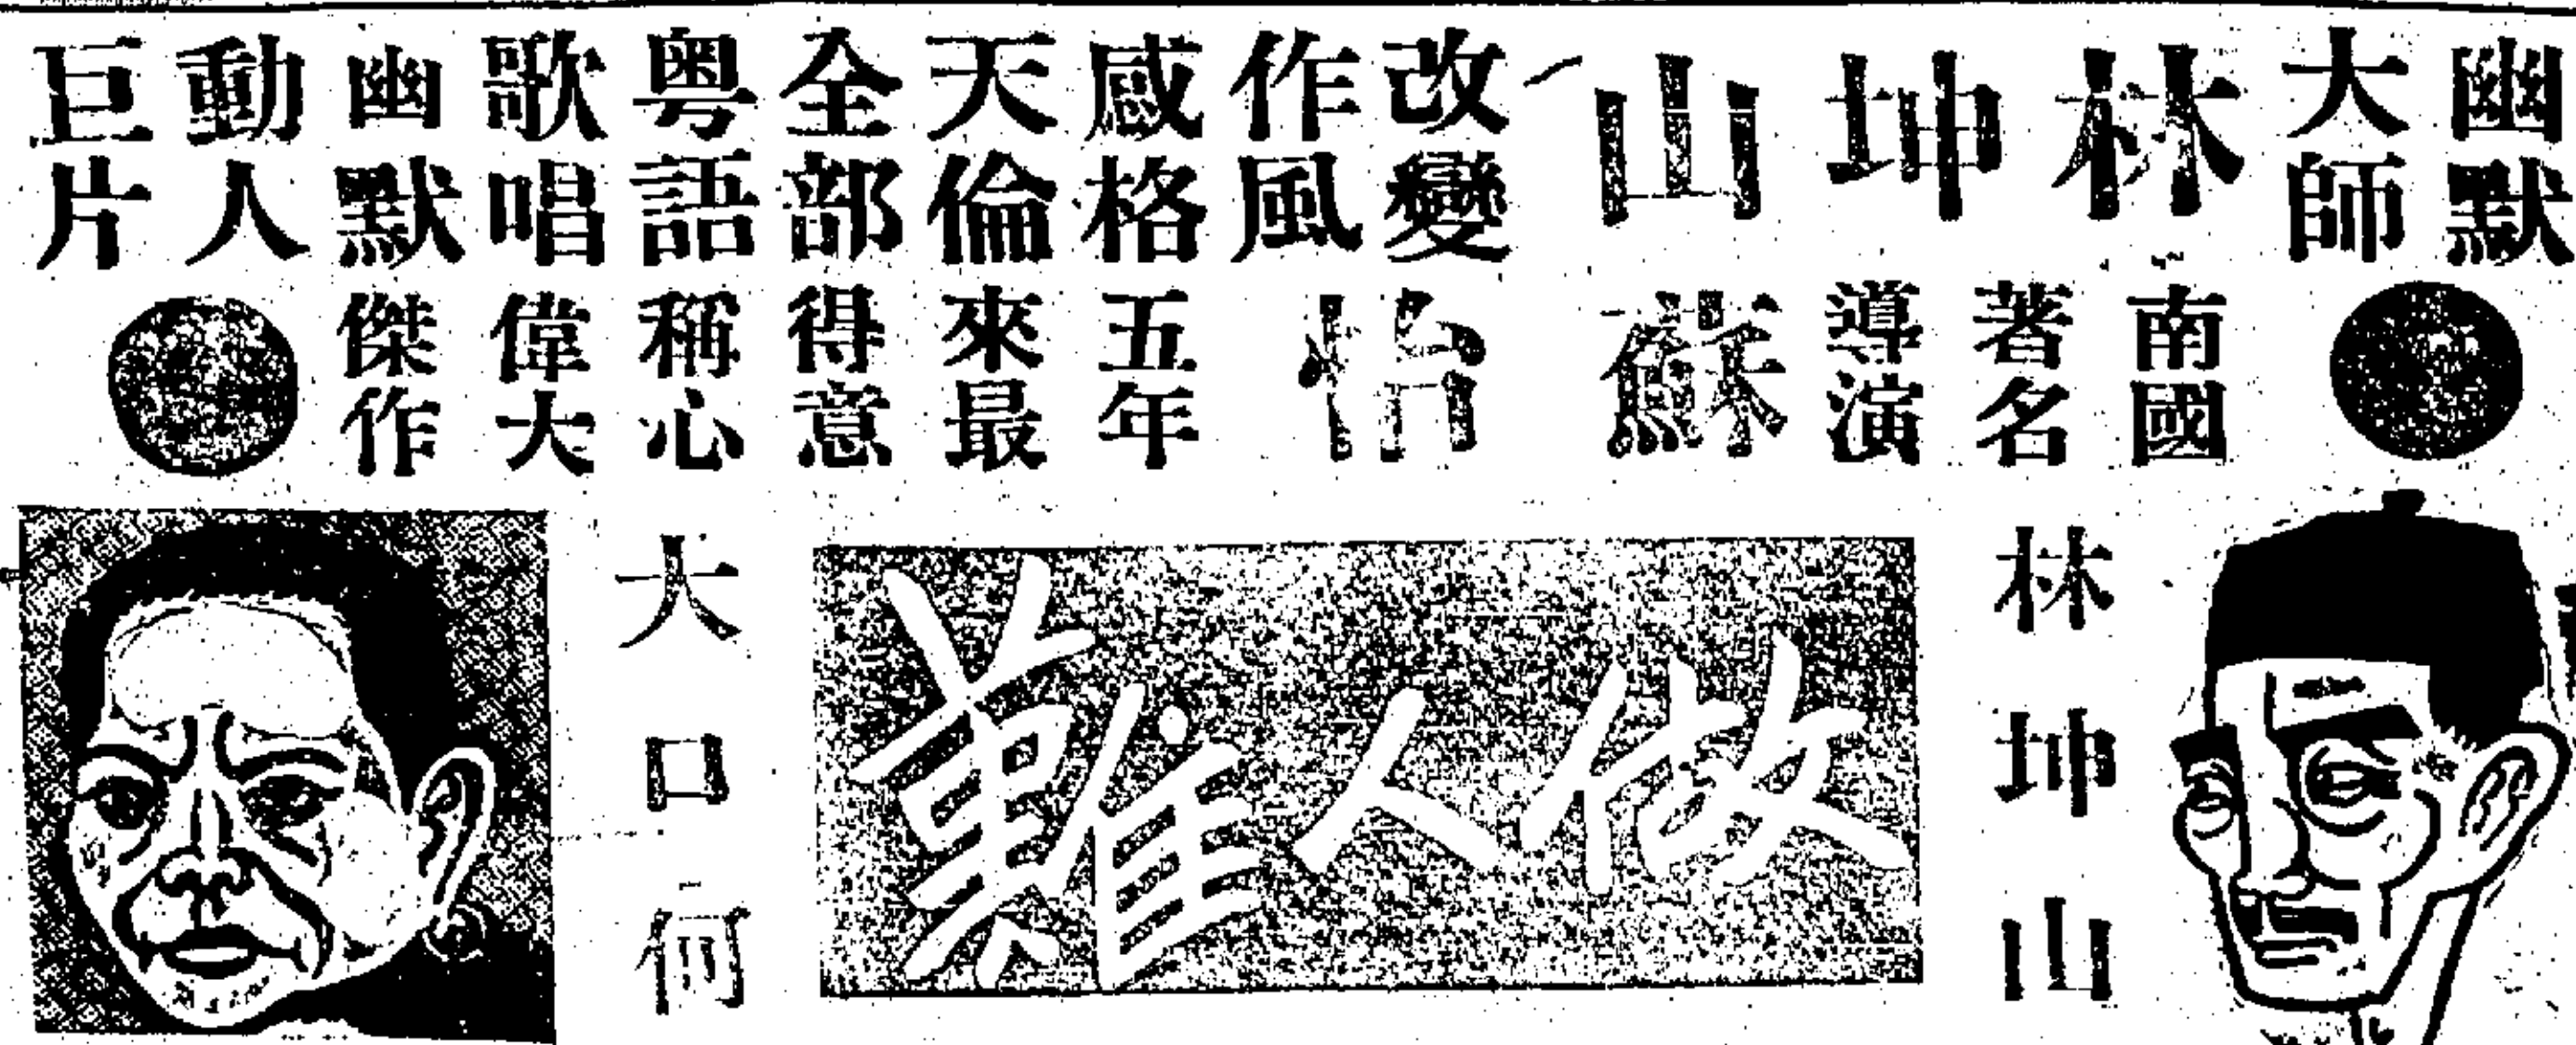 幽默大師林坤山改變作風感格天倫全部粤語歌唱幽默動人巨片
南國著名導演蘇怡五年來最得意稱心偉大傑作
林坤山
做人難
大口何